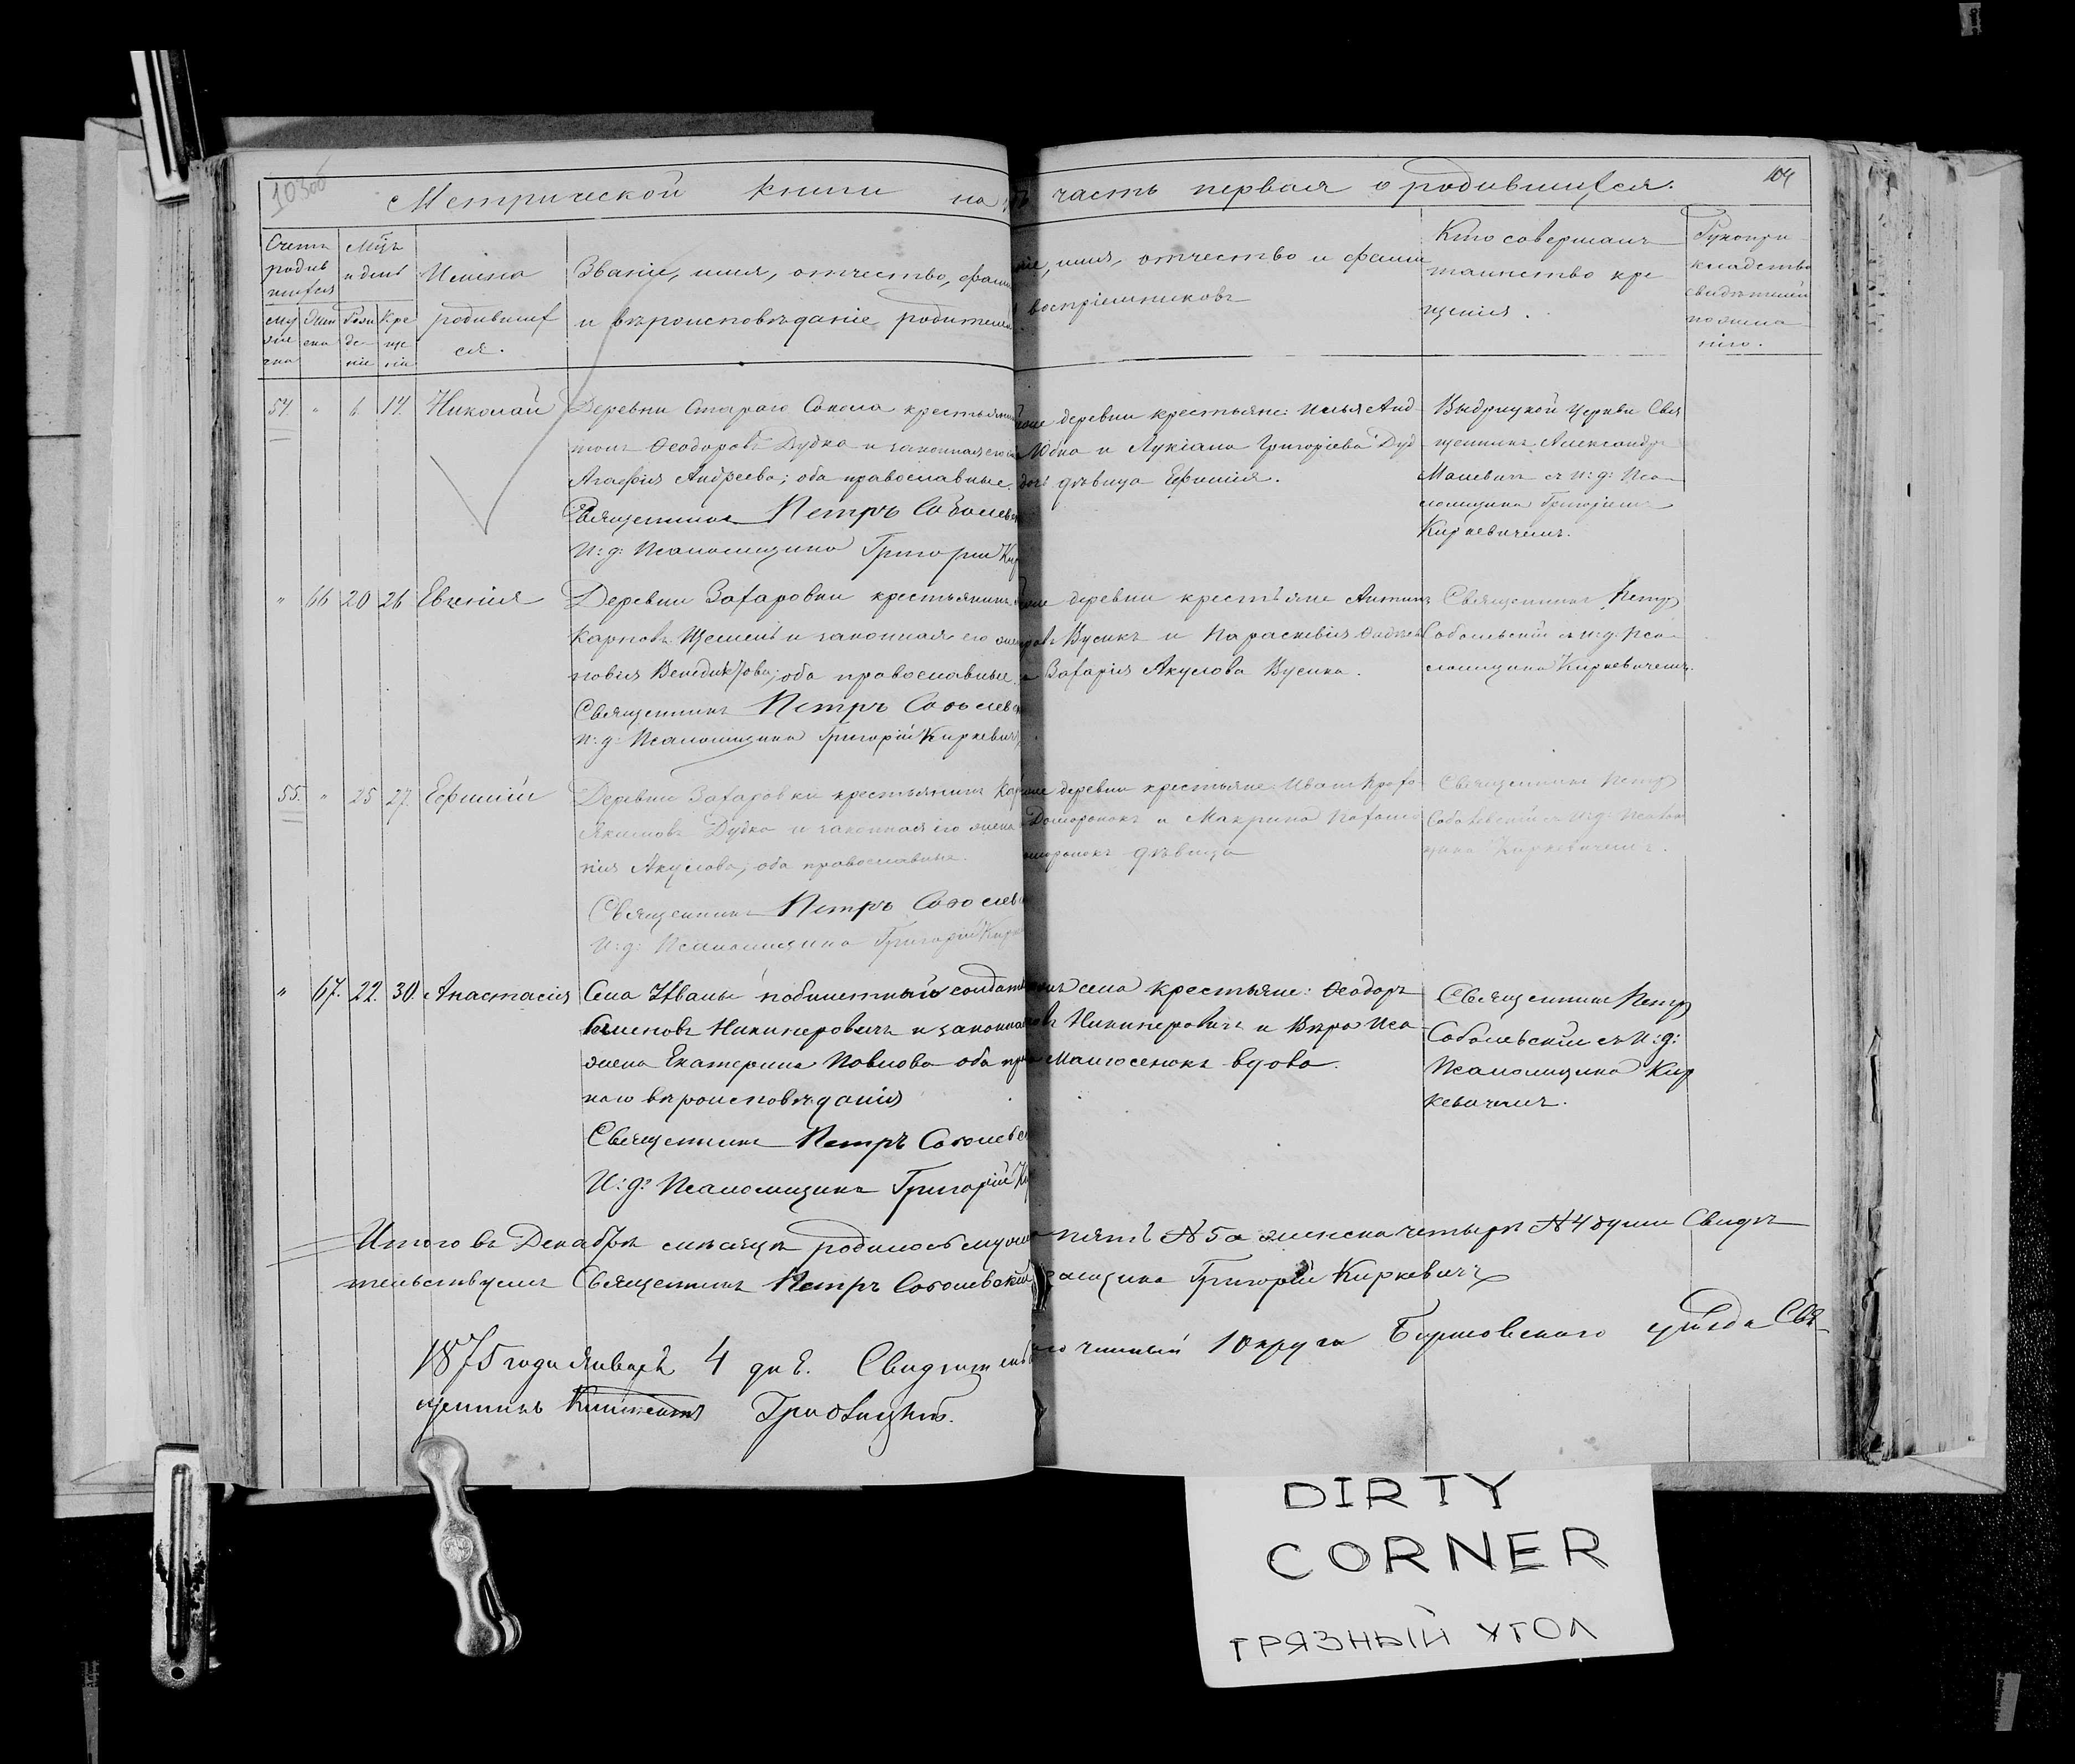 103об
104
Метрической книги на часть первая о родившихся.
Счетъ родив шихся
Мѣц. и день
Имена родившихся.
Званіе, имя, отчество, фами
и вѣроисповѣданіе родителей
имя, отчество и фами
воспріемниковъ
Кто совершалъ
таинство кре
щенія.
Рукопри
кладство
свидѣтелей
по жела
нію.
54. " 6 14. Николай
Деревни Стараго Сокола крестьянинъ
Ѳеодоровъ Дудка и законная его
Агафія Андреева; оба православные.
Священникъ Петръ Соболев
И: д: Псаломщика Григорій Кир
деревни крестьяне: Илья Анд
и Лукіана Григоріева Дуд
дѣвица Ефимія.
Выдрицкой Церкви Свя
щенникъ Александръ
Мацевичъ съ и: д: Пса
ломщика Григоріемъ
Киркевичемъ.
" 66 20 26 Евгенія
Деревни Захаровки крестьянинъ
Карповъ Щемель и законная его
Венедиктова; оба православные.
Священникъ Петръ Соболевск
И: д: Псаломщика Григорій Киркевичъ
деревни крестьяне Антипъ
Вусикъ и Параскевія
Захарія Акулова Вусика.
Священникъ Петръ
Соболевскій съ и: д: Пса
ломщика Киркевичемъ.
55. " 25 27. Ефимій
Деревни Захаровки крестьянинъ
Якимовъ Дудка и законная его жена
нія Акулова; оба православные.
Священникъ Петръ Соболев
И: д: Псаломщика Григорій Кирк
деревни крестьяне Иванъ
и Макрина
дѣвица
Священникъ Петръ
Соболевскій съ и: д: Псалом
щика Киркевичемъ.
" 67. 22. 30. Анастасія
Села Ухвалы побилетный солдатъ
Семеновъ Никиперовичъ и законная
жена Екатерина Павлова оба пра
наго вѣроисповѣданія
Священникъ Петръ Соболевс
И: д: Псаломщика Григорій Ки
села крестьяне: Ѳеодоръ
Никиперовичъ и Вѣра Иса
вдова.
Священникъ Петръ
Соболевскій съ и: д:
Псаломщика Кир
кевичемъ.
Итого въ Декабрѣ мѣсяцѣ родилось мужа пять № 5 а женска четыре № 4 души Свидѣ
тельствуемъ Священникъ Петръ Соболевскій ломщика Григорій Киркевичъ
1875 года Января 4 дня. Свидѣтель чинный 1 округа Борисовскаго уѣзда Свя
щенникъ
DIRTY
CORNER
ГРЯЗНЫЙ УГОЛ